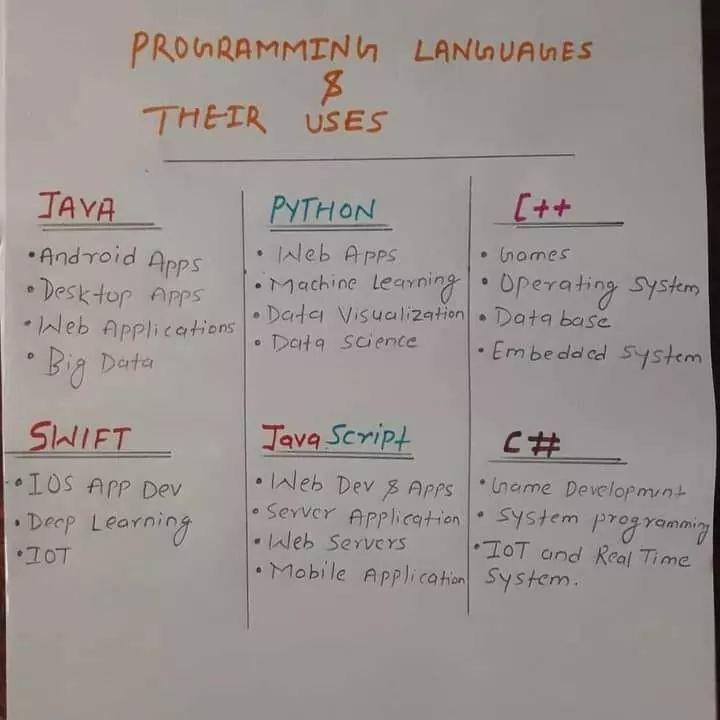 PROGRAMMING LANGUAGES
&
THEIR USES
JAVA
• Android Apps
• Desktop Apps
• Web Applications
• Big Data
PYTHON
• Web Apps
• Machine Learning
• Data Visualization
• Data Science
C++
• Games
• Operating System
• Database
• Embedded System
SWIFT
• IOS App Dev
• Deep Learning
• IOT
Java Script
• Web Dev & Apps
• Server Application
• Web Servers
• Mobile Application
C#
• Game Development
• System programming
• IoT and Real Time
System.